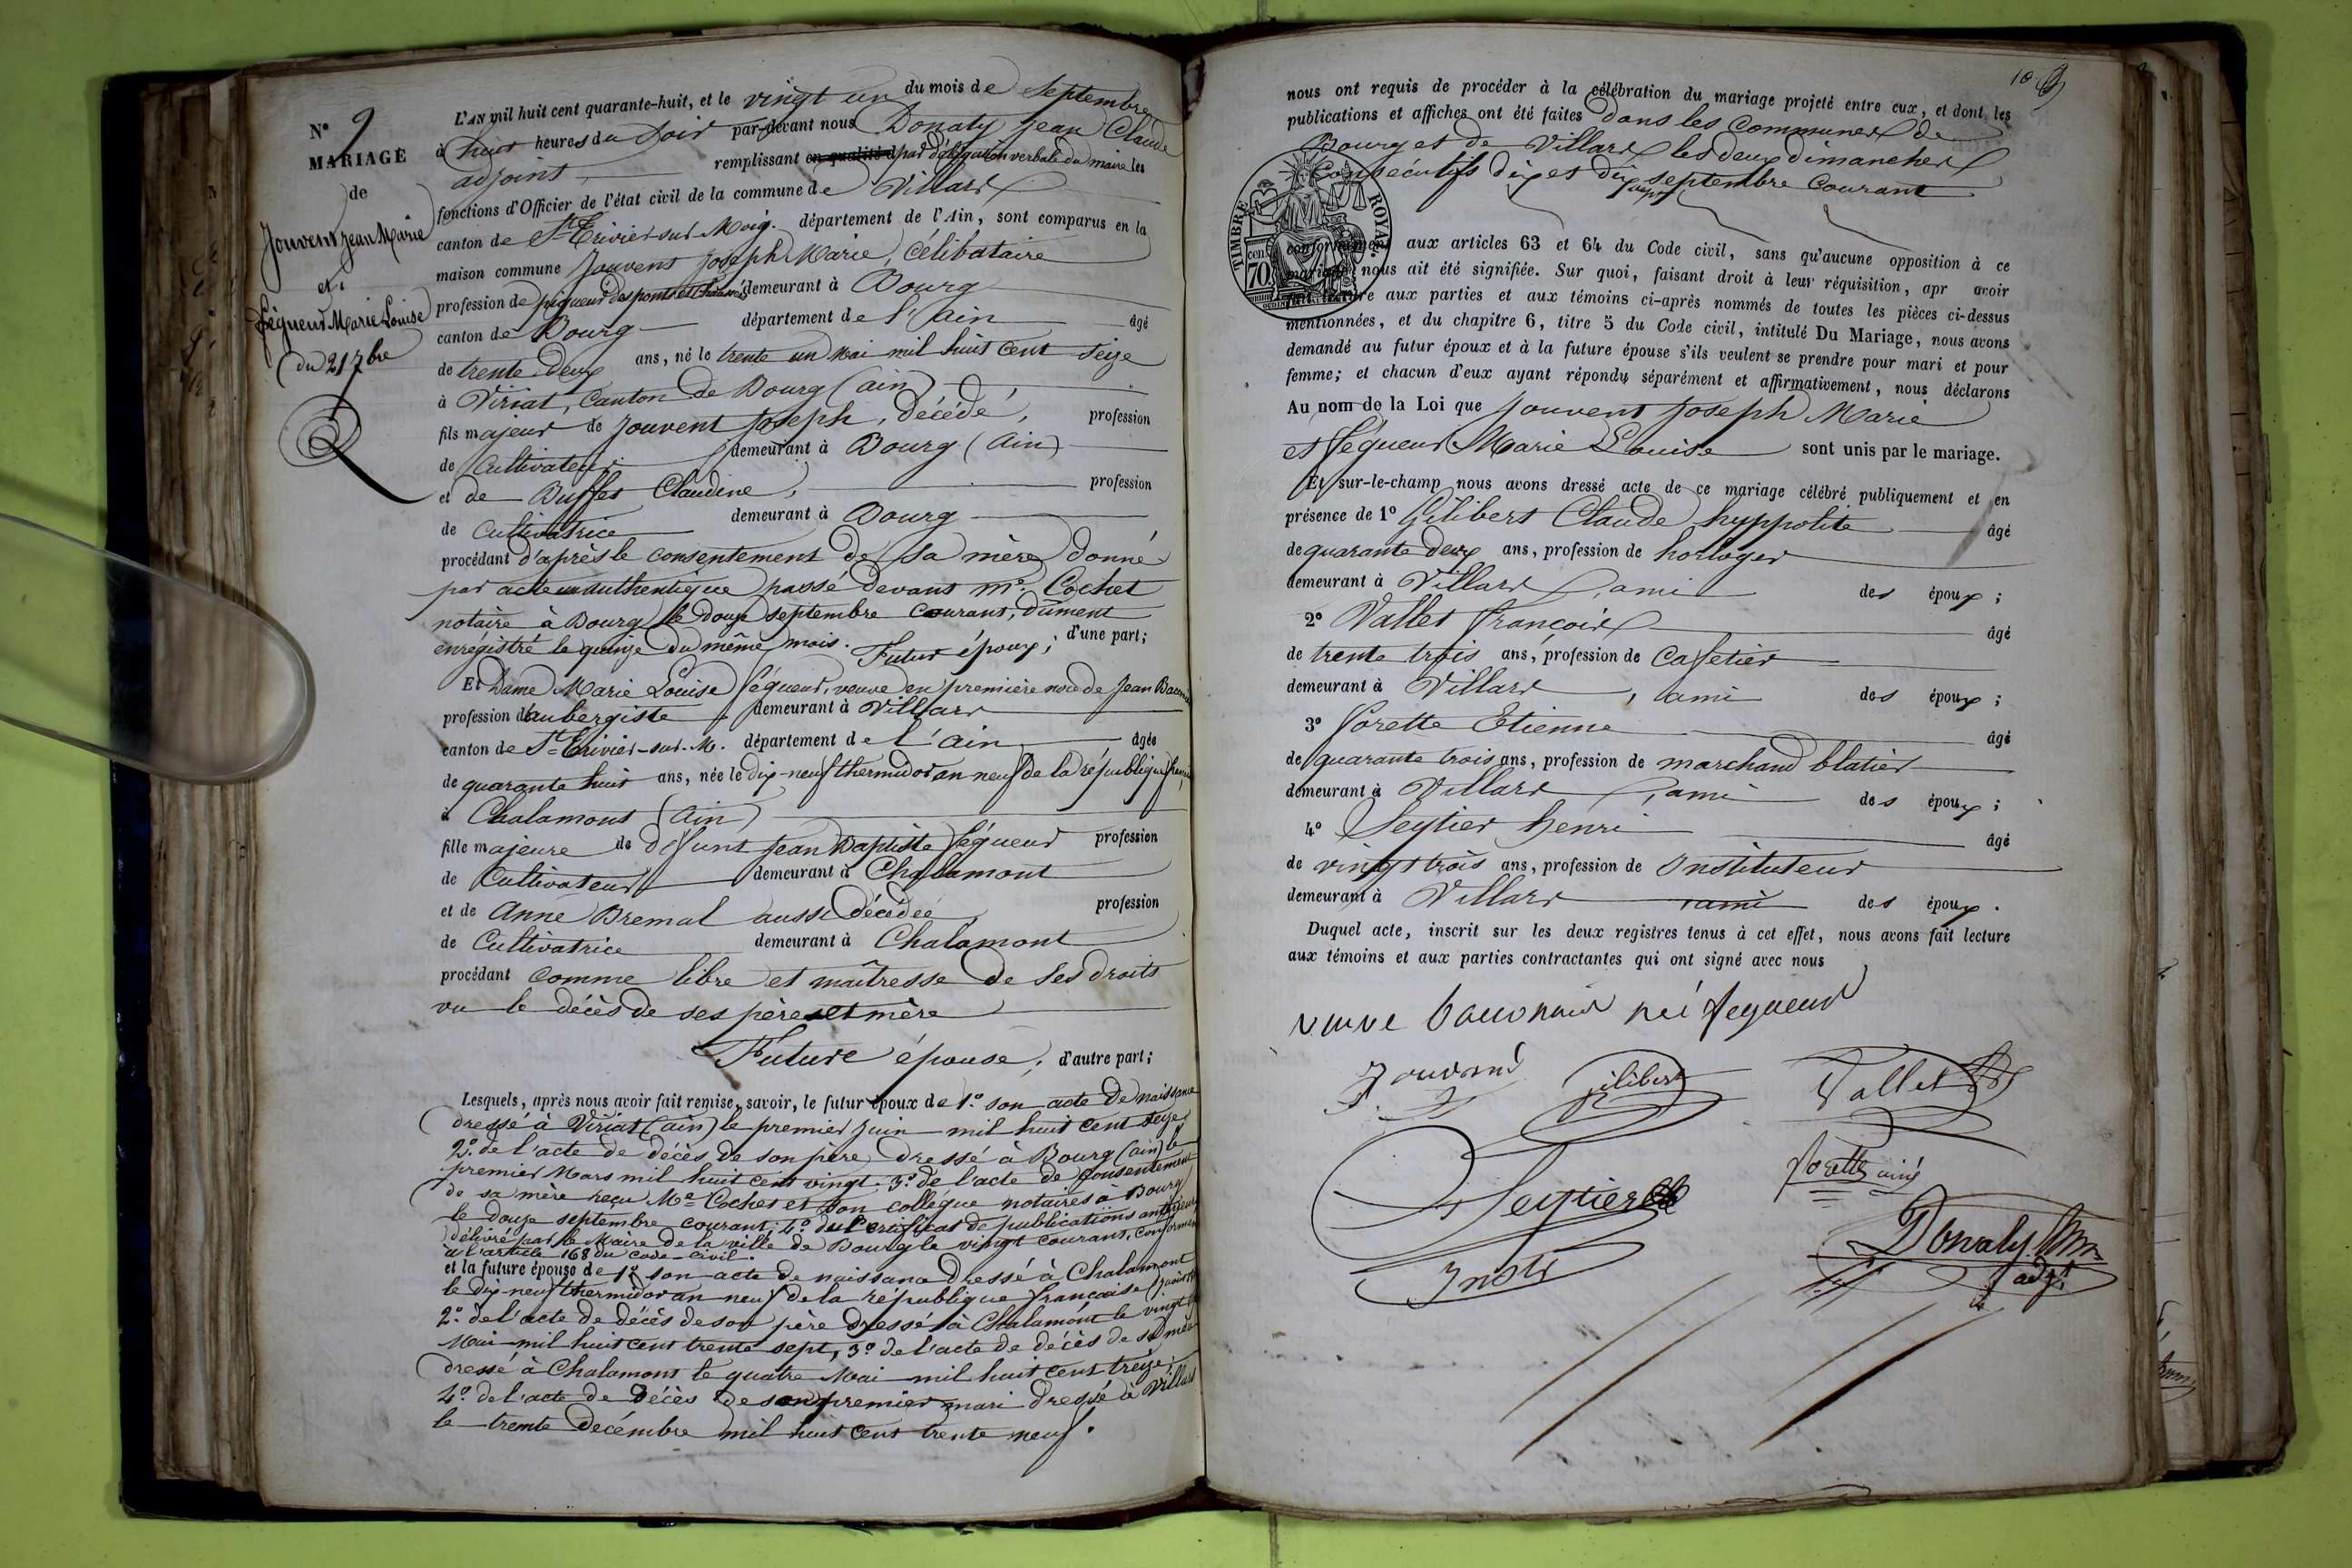 N° 9
MARIAGE
de
Jouvent Jean Marie
et
Fégueur Marie Louise
du 21 7bre
L'AN mil huit cent quarante-huit, et le vingt un du mois de Septembre
à huit heures du Soir par-devant nous Donaty Jean Claude
adjoint remplissant en qualité d par délégation verbale du maire les
fonctions d'Officier de l'état civil de la commune de Villars
canton de St Trivier-sur-Moig. département de l'Ain, sont comparus en la
maison commune Jouvent Joseph Marie, Célibataire
profession de piqueur des ponts et chaussées demeurant à Bourg
canton de Bourg département de l'ain âgé
de trente deux ans, né le trente un Mai mil huit cent seize
à Viriat, Canton de Bourg (ain)
fils majeur de Jouvent Joseph, décédé, profession
de Cultivateur demeurant à Bourg (Ain)
et de Buffet Claudine, profession
de Cultivatrice demeurant à Bourg
procédant d'après le consentement de sa mère donné
par acte authentique passé devant Me. Cochet
notaire à Bourg le douze septembre courant, dûment
enrégistré le quinze du même mois. Futur époux; d'une part;
Et Dame Marie Louise Fégueur, veuve en première noce de Jean
profession d'aubergiste demeurant à Villars
canton de St Trivier-sur-M. département de l'ain âgée
de quarante huit ans, née le dix-neuf thermidor an neuf de la république
à Chalamont (Ain)
fille majeure de défunt Jean Baptiste Fégueur profession
de Cultivateur demeurant à Chalamont
et de Anne Bremal aussi décédée, profession
de Cultivatrice demeurant à Chalamont
procédant comme libre et maîtresse de ses droits
vu le décès de ses père et mère
Future épouse, d'autre part;
Lesquels, après nous avoir fait remise, savoir, le futur époux de 1° son acte de naissance
dressé à Viriat (ain) le premier Juin mil huit cent seize
2° de l'acte de décès de son père dressé à Bourg (ain) le
premier Mars mil huit cent vingt. 3° de l'acte de consentement
de sa mère reçu Me Cochet et son collègue notaires à Bourg
le douze septembre courant; 4° du Certificat de publications
délivré par le Maire de la ville de Bourg le vingt courant, conformément
à l'article 168 du code civil.
et la future épouse de 1° son acte de naissance dressé à Chalamont
le dix-neuf thermidor an neuf de la république française
2° de l'acte de décès de son père dressé à Chalamont le vingt
Mai mil huit cent trente sept, 3° de l'acte de décès de sa mère
dressé à Chalamont le quatre Mai mil huit cent treize;
4° de l'acte de décès de son premier mari dressé à Villars
le trente Decémbre mil huit cent trente neuf.
10
nous ont requis de procéder à la célébration du mariage projeté entre eux, et dont les
publications et affiches ont été faites dans les communes de
Bourg et de Villars les deux dimanches
Consécutifs dix et dix sept septembre courant
TIMBRE ROYAL
70 cen
conformément aux articles 63 et 64 du Code civil, sans qu'aucune opposition à ce
mariage nous ait été signifiée. Sur quoi, faisant droit à leur réquisition, apr avoir
fait lecture aux parties et aux témoins ci-après nommés de toutes les pièces ci-dessus
mentionnées, et du chapitre 6, titre 5 du Code civil, intitulé Du Mariage, nous avons
demandé au futur époux et à la future épouse s'ils veulent se prendre pour mari et pour
femme; et chacun d'eux ayant répondu séparément et affirmativement, nous déclarons
Au nom de la Loi que Jouvent Joseph Marie
et Fégueur Marie Louise sont unis par le mariage.
Et sur-le-champ nous avons dressé acte de ce mariage célébré publiquement et en
présence de 1° Gilibert Claude hyppolite âgé
de quarante deux ans, profession de horloger
demeurant à Villars, ami des époux;
2° Vallet François âgé
de trente trois ans, profession de Cafetier
demeurant à Villars, ami des époux;
3° Forette Etienne âgé
de quarante trois ans, profession de marchand blatier
demeurant à Villars, ami des époux;
4° Seytier henri âgé
de vingt trois ans, profession de Instituteur
demeurant à Villars ami des époux.
Duquel acte, inscrit sur les deux registres tenus à cet effet, nous avons fait lecture
aux témoins et aux parties contractantes qui ont signé avec nous
née fegueur
Jouvent Gilibert Vallet
Seytier Forette ainé
Instr Donaty
adjt